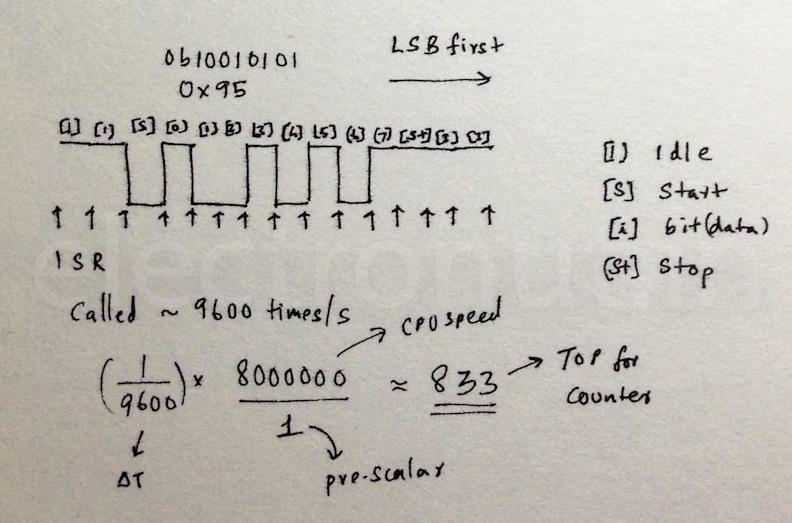 0b10010101
0x95
LSB first
[i] [i] [S] [0] [1] [2] [3] [4] [5] [6] [7] [St] [i] [i]
[I] Idle
[S] Start
[i] bit(data)
[St] Stop
ISR
Called ~ 9600 times/s
CPU speed
(1/9600) × 8000000/1 ≈ 833
TOP for
counter
ΔT
pre-scalar